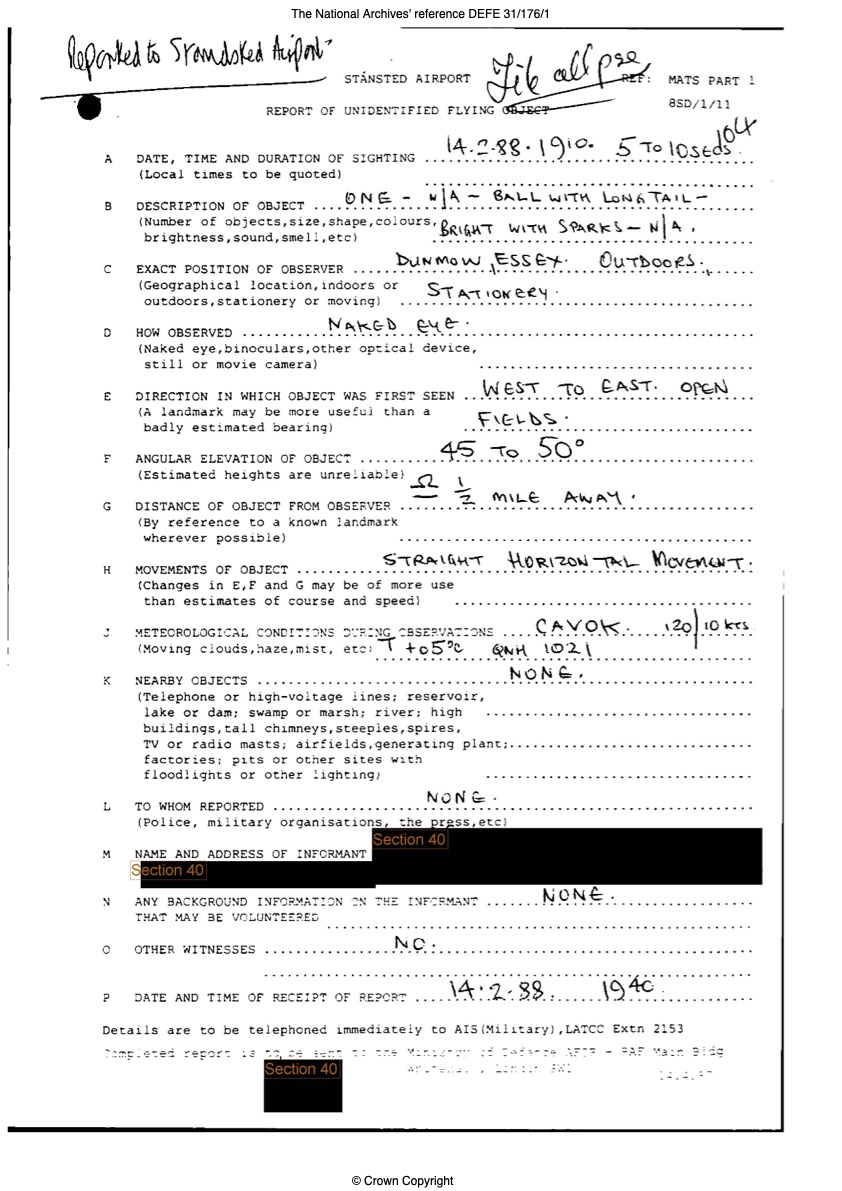 The National Archives' reference DEFE 31/176/1
Reported to Standsted Airport
STANSTED AIRPORT
REF: MATS PART 1
8SD/1/11
REPORT OF UNIDENTIFIED FLYING OBJECT
104
A DATE, TIME AND DURATION OF SIGHTING 14.2.88. 1910. 5 TO 10 SECS
(Local times to be quoted)
B DESCRIPTION OF OBJECT ONE - N/A - BALL WITH LONG TAIL -
(Number of objects,size,shape,colours, BRIGHT WITH SPARKS - N/A.
brightness,sound,smell,etc)
C EXACT POSITION OF OBSERVER DUNMOW, ESSEX. OUTDOORS.
(Geographical location,indoors or STATIONERY.
outdoors,stationery or moving)
D HOW OBSERVED NAKED EYE.
(Naked eye,binoculars,other optical device,
still or movie camera)
E DIRECTION IN WHICH OBJECT WAS FIRST SEEN WEST TO EAST. OPEN
(A landmark may be more useful than a FIELDS.
badly estimated bearing)
F ANGULAR ELEVATION OF OBJECT 45 TO 50°
(Estimated heights are unreliable)
G DISTANCE OF OBJECT FROM OBSERVER ½ MILE AWAY.
(By reference to a known landmark
wherever possible)
H MOVEMENTS OF OBJECT STRAIGHT HORIZONTAL MOVEMENT.
(Changes in E,F and G may be of more use
than estimates of course and speed)
J METEOROLOGICAL CONDITIONS DURING OBSERVATIONS CAVOK. 120/10 KTS
(Moving clouds,haze,mist, etc) T +05°C QNH 1021
K NEARBY OBJECTS NONE.
(Telephone or high-voltage lines; reservoir,
lake or dam; swamp or marsh; river; high
buildings,tall chimneys,steeples,spires,
TV or radio masts; airfields,generating plant;
factories; pits or other sites with
floodlights or other lighting)
L TO WHOM REPORTED NONE.
(Police, military organisations, the press,etc)
Section 40
M NAME AND ADDRESS OF INFORMANT
Section 40
N ANY BACKGROUND INFORMATION ON THE INFORMANT NONE.
THAT MAY BE VOLUNTEERED
O OTHER WITNESSES NO.
P DATE AND TIME OF RECEIPT OF REPORT 14.2.88 1940.
Details are to be telephoned immediately to AIS(Military),LATCC Extn 2153
Completed report is to be sent to the Ministry of Defence - RAF Main Bldg
Section 40
Whitehall, London SW1
© Crown Copyright